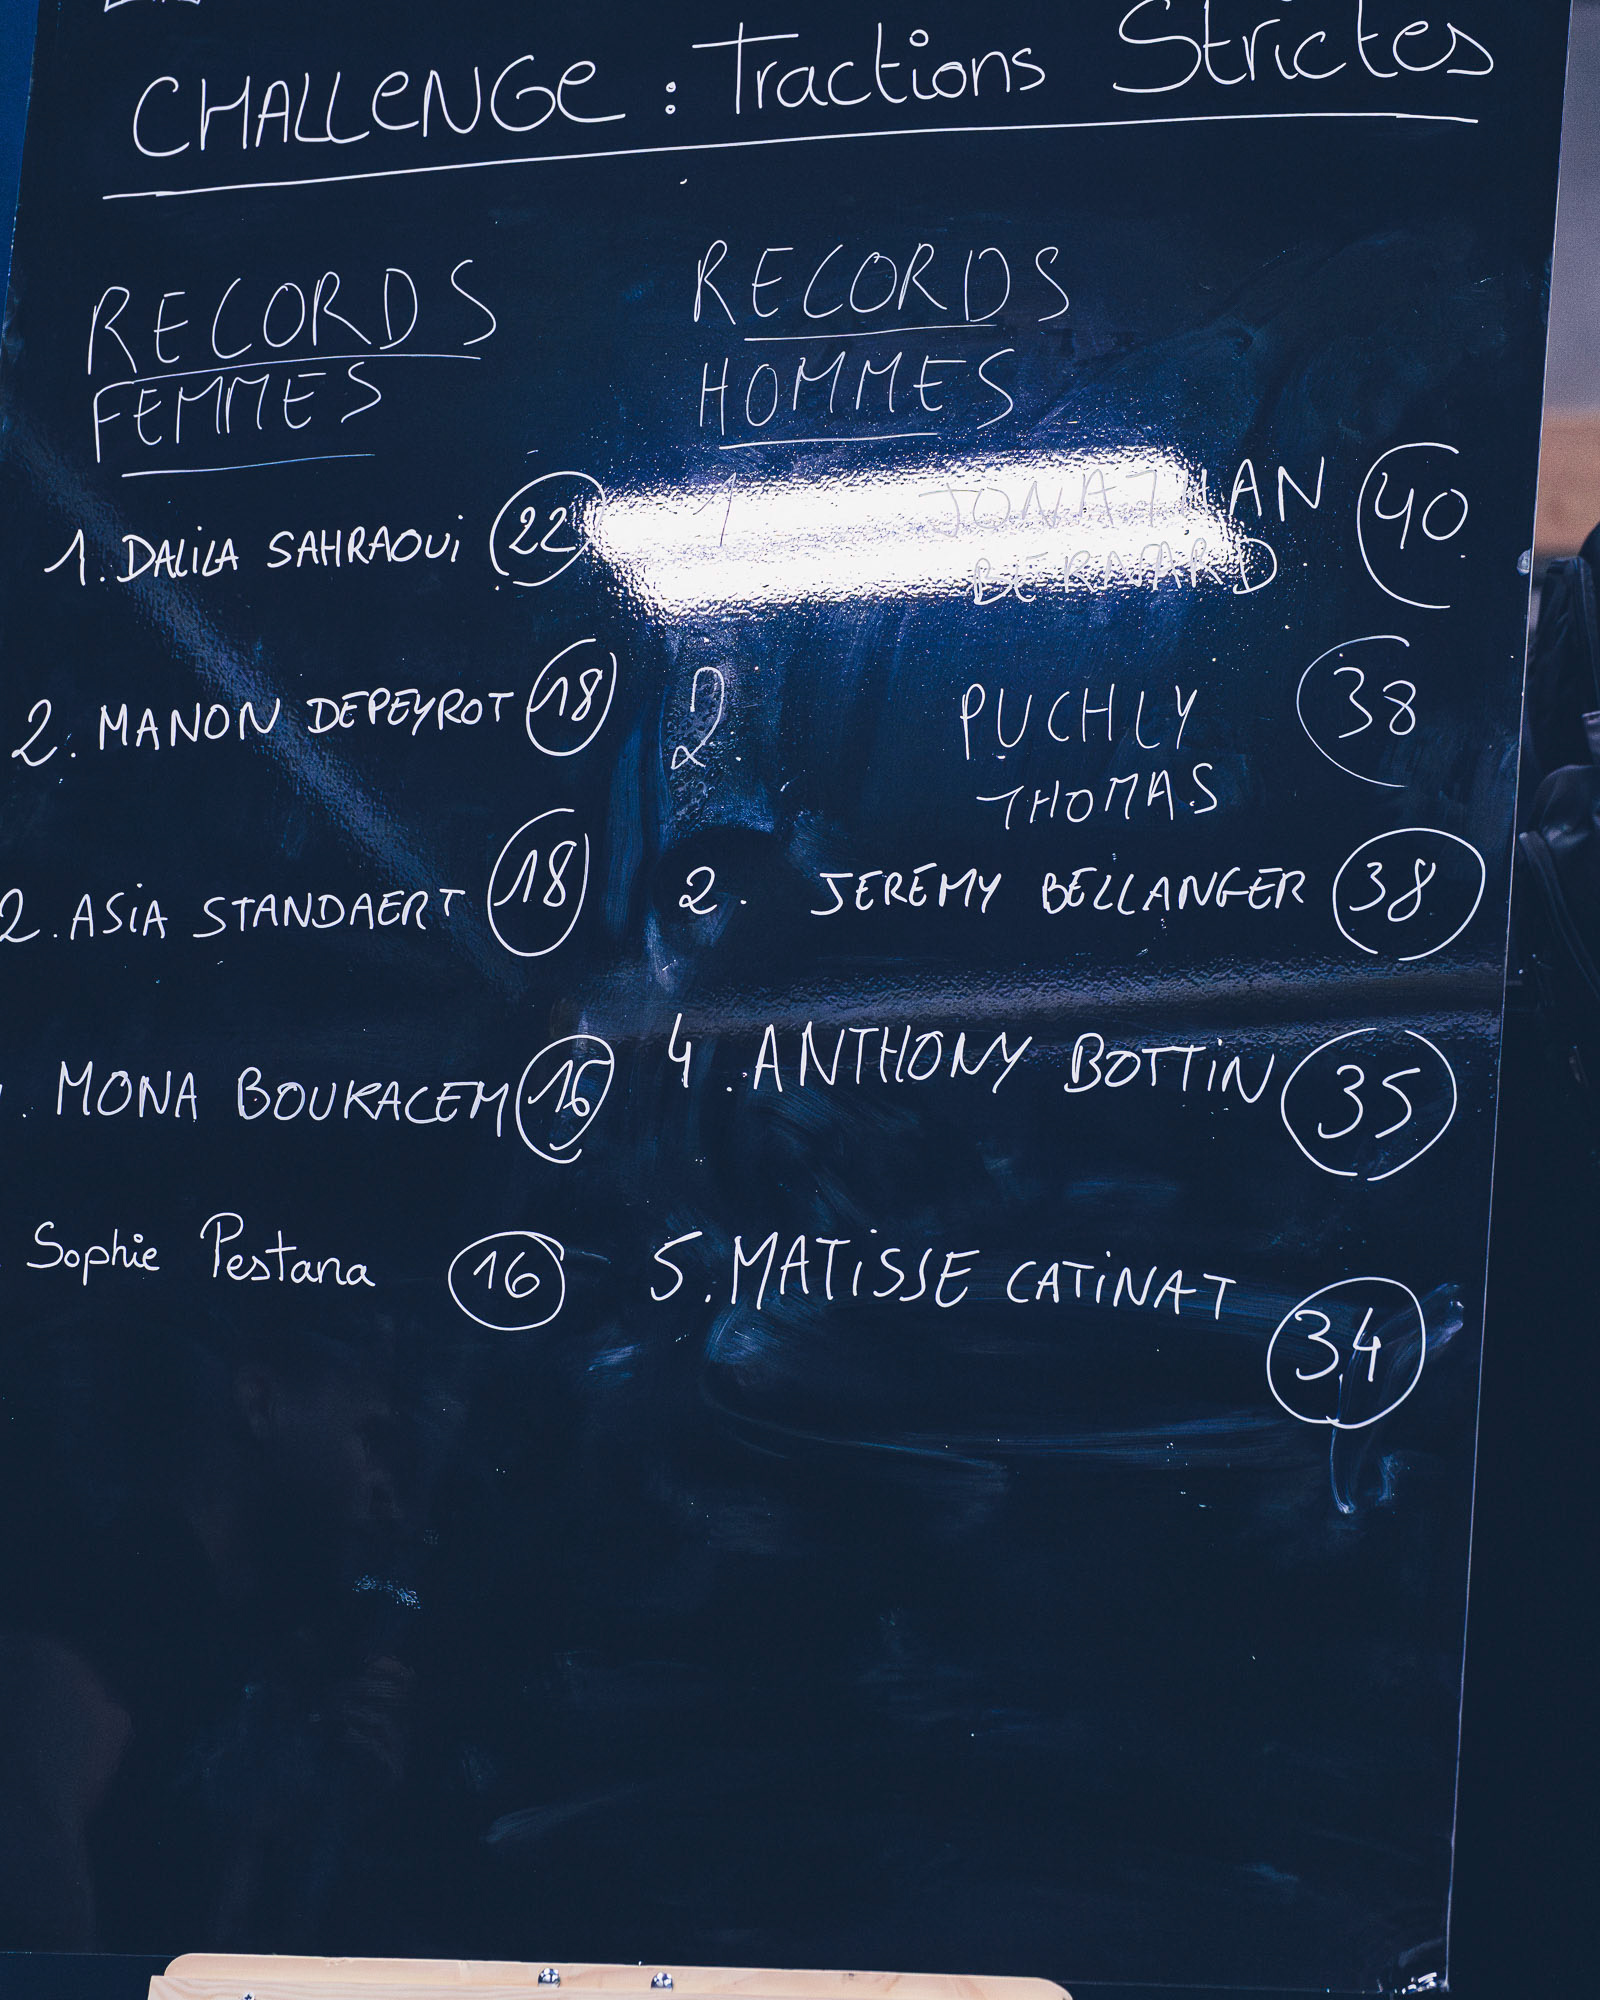 CHALLENGE : Tractions Strictes
RECORDS
FEMMES
1. DALILA SAHRAOUI 22
2. MANON DEPEYROT 18
2. ASIA STANDAERT 18
. MONA BOUKACEM 16
Sophie Pestana 16
RECORDS
HOMMES
1 JONATHAN 40
BERNARD
2 PUCHLY 38
THOMAS
2. JEREMY BELLANGER 38
4. ANTHONY BOTTIN 35
5. MATISSE CATINAT
34